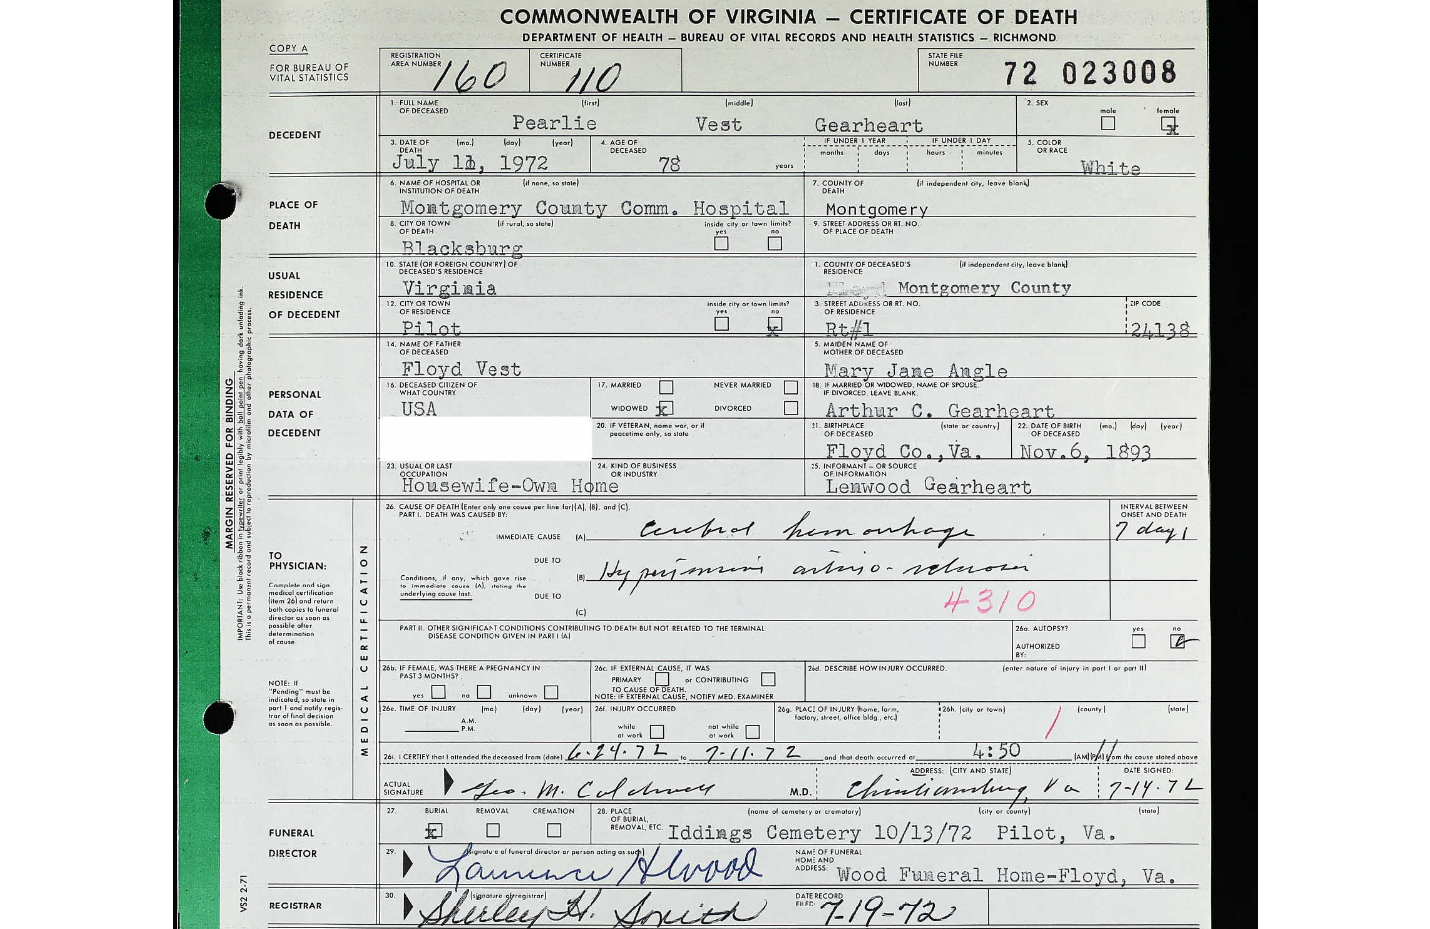 COMMONWEALTH OF VIRGINIA — CERTIFICATE OF DEATH
DEPARTMENT OF HEALTH — BUREAU OF VITAL RECORDS AND HEALTH STATISTICS — RICHMOND
COPY A
FOR BUREAU OF VITAL STATISTICS
REGISTRATION AREA NUMBER 160
CERTIFICATE NUMBER 110
STATE FILE NUMBER 72 023008
DECEDENT
1. FULL NAME OF DECEASED (first) (middle) (last)
Pearlie Vest Gearheart
2. SEX male female x
3. DATE OF DEATH (mo.) (day) (year)
July 11, 1972
4. AGE OF DECEASED 78 years
IF UNDER 1 YEAR months days IF UNDER 1 DAY hours minutes
5. COLOR OR RACE White
PLACE OF DEATH
6. NAME OF HOSPITAL OR INSTITUTION OF DEATH (if none, so state)
Montgomery County Comm. Hospital
7. COUNTY OF DEATH (if independent city, leave blank)
Montgomery
8. CITY OR TOWN OF DEATH (if rural, so state) inside city or town limits? yes no
Blacksburg
9. STREET ADDRESS OR RT. NO. OF PLACE OF DEATH
USUAL RESIDENCE OF DECEDENT
10. STATE (OR FOREIGN COUNTRY) OF DECEASED'S RESIDENCE
Virginia
1. COUNTY OF DECEASED'S RESIDENCE (if independent city, leave blank)
Montgomery County
12. CITY OR TOWN OF RESIDENCE inside city or town limits? yes no x
Pilot
3. STREET ADDRESS OR RT. NO. OF RESIDENCE
Rt#1
ZIP CODE 24138
PERSONAL DATA OF DECEDENT
14. NAME OF FATHER OF DECEASED
Floyd Vest
5. MAIDEN NAME OF MOTHER OF DECEASED
Mary Jane Angle
16. DECEASED CITIZEN OF WHAT COUNTRY
USA
17. MARRIED NEVER MARRIED
WIDOWED x DIVORCED
18. IF MARRIED OR WIDOWED, NAME OF SPOUSE. IF DIVORCED, LEAVE BLANK.
Arthur C. Gearheart
20. IF VETERAN, name war, or if peacetime only, so state
21. BIRTHPLACE OF DECEASED (state or country)
Floyd Co.,Va.
22. DATE OF BIRTH OF DECEASED (mo.) (day) (year)
Nov.6, 1893
23. USUAL OR LAST OCCUPATION
Housewife-Own Home
24. KIND OF BUSINESS OR INDUSTRY
25. INFORMANT – OR SOURCE OF INFORMATION
Lenwood Gearheart
MARGIN RESERVED FOR BINDING
IMPORTANT: Use black ribbon in typewriter or print legibly with ball point pen having dark unfading ink.
This is a permanent record and subject to reproduction by microfilm and other photographic process.
TO PHYSICIAN:
Complete and sign medical certification (item 26) and return both copies to funeral director as soon as possible after determination of cause.
NOTE: If "Pending" must be indicated, so state in part I and notify registrar of final decision as soon as possible.
MEDICAL CERTIFICATION
26. CAUSE OF DEATH (Enter only one cause per line for (A), (B), and (C).
PART I. DEATH WAS CAUSED BY:
INTERVAL BETWEEN ONSET AND DEATH
IMMEDIATE CAUSE (A) Cerebral hemorrhage 7 days
DUE TO
Conditions, if any, which gave rise to immediate cause (A), stating the underlying cause last.
(B) Hypertensive arterio-sclerosis
DUE TO
(C)
4310
PART II. OTHER SIGNIFICANT CONDITIONS CONTRIBUTING TO DEATH BUT NOT RELATED TO THE TERMINAL DISEASE CONDITION GIVEN IN PART I (A)
26a. AUTOPSY? yes no
AUTHORIZED BY:
26b. IF FEMALE, WAS THERE A PREGNANCY IN PAST 3 MONTHS?
yes no unknown
26c. IF EXTERNAL CAUSE, IT WAS
PRIMARY or CONTRIBUTING
TO CAUSE OF DEATH.
NOTE: IF EXTERNAL CAUSE, NOTIFY MED. EXAMINER
26d. DESCRIBE HOW INJURY OCCURRED. (enter nature of injury in part I or part II)
26e. TIME OF INJURY (mo) (day) (year)
A.M.
P.M.
26f. INJURY OCCURRED
while at work not while at work
26g. PLACE OF INJURY (home, farm, factory, street, office bldg., etc.)
26h. (city or town) (county) (state)
26i. I CERTIFY that I attended the deceased from (date) 6-24-72 to 7-11-72 and that death occurred at 4:50 (AM) from the cause stated above
ACTUAL SIGNATURE Geo. M. Caldwell M.D.
ADDRESS: (CITY AND STATE) Christiansburg, Va
DATE SIGNED: 7-14-72
FUNERAL DIRECTOR
27. BURIAL x REMOVAL CREMATION
28. PLACE OF BURIAL, REMOVAL, ETC. (name of cemetery or crematory) (city or county) (state)
Iddings Cemetery 10/13/72 Pilot, Va.
29. (signature of funeral director or person acting as such)
Lawrence H Wood
NAME OF FUNERAL HOME AND ADDRESS: Wood Funeral Home-Floyd, Va.
REGISTRAR
30. (signature of registrar)
Shirley H. Smith
DATE RECORD FILED: 7-19-72
VS2 2-71